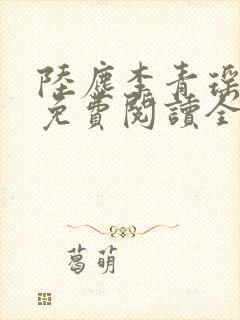 陸塵李青瑤
免費閱讀全
葛萌